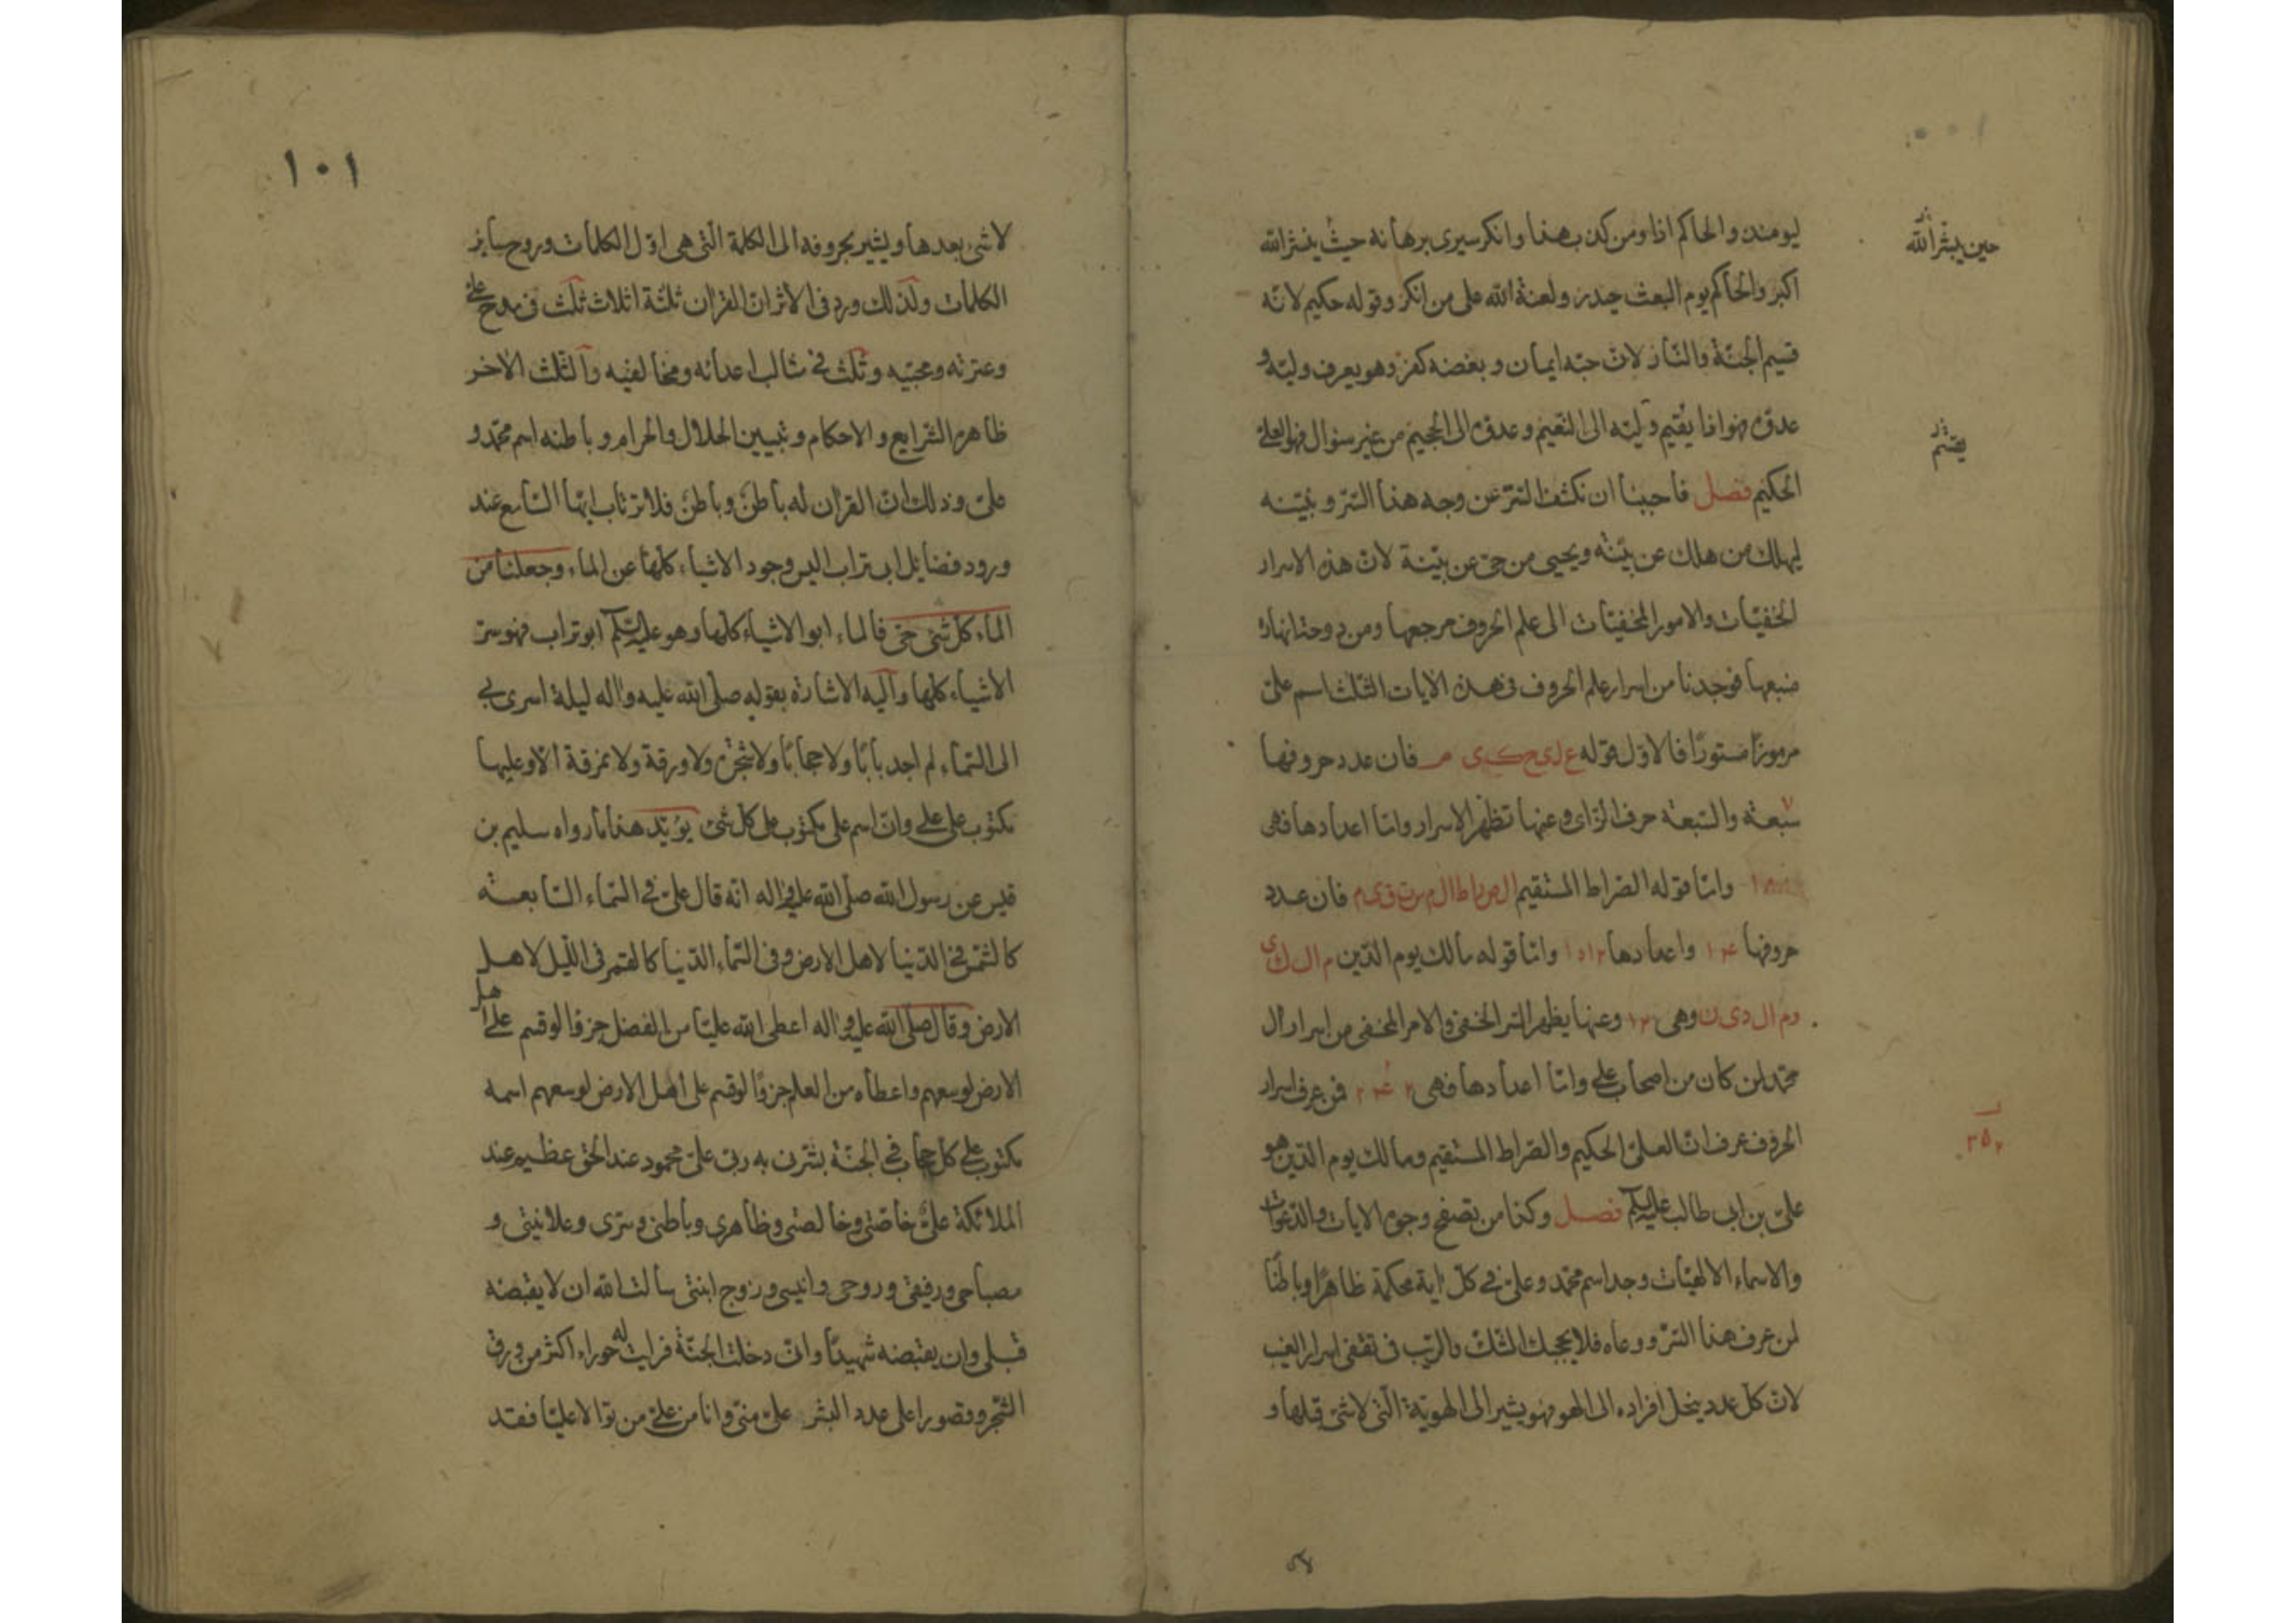 ليومئذ والحاكم اذا ومن كذب بهذا وانكر سيرى برهانه حيث ينشر الله
حين ينشر الله
اكبر والحاكم يوم البعث حيدر ولعنة الله على من انكر وقوله حكيم لانه
قسيم الجنّة والنّار لانّ حبّه ايمان وبغضه كفر وهو يعرف وليّه و
عدوّه فهو اذا يقيم وليّه الى النّعيم وعدوّه الى الجحيم من غير سؤال فهو العلىّ
يقسّم
الحكيم فصل فاحببنا ان نكشف السّتر عن وجه هذا السّرّ ونبيّنه
ليهلك من هلك عن بيّنة ويحيى من حىّ عن بيّنة لانّ هذه الاسرار
الخفيّات والامور المخفيّات الى علم الحروف مرجعها ومن دوحتها نهارة
منبعها فوجدنا من اسرار علم الحروف فى هذه الايات الثّلث اسم علىّ
مرموزًا مستورًا فالاوّل قوله ع ل ى ح ك ى م فان عدد حروفها
٧
سبعة والسّبعة حرف الزاى وعنها تظهر الاسرار وامّا اعدادها فهى
وامّا قوله الصّراط المستقيم ال ص ر ا ط ال م س ت ق ى م فان عدد
حروفها ١٤ واعدادها وامّا قوله مالك يوم الدّين م ال ك ى
و م ال د ى ن وهى ١٢ وعنها يظهر السّر الخفىّ والامر المخفى من اسرار ال
محمّد لمن كان من اصحاب علىّ وامّا اعدادها فهى ٢٤٢ فمن عرف اسرار
٢٥٢
الحروف عرف انّ العلىّ الحكيم والصّراط المستقيم ومالك يوم الدّين هو
علىّ بن ابى طالب عليه السّلم فصل وكذا من تصفح وجوه الايات والدّعوات
والاسماء الالهيّات وجد اسم محمّد وعلىّ فى كلّ اية محكمة ظاهرًا وباطنًا
لمن عرف هذا السّرّ ووعاه فلا يحجبك الشّكّ والرّيب فى تقفى اسرار الغيب
لانّ كلّ عدد ينحلّ افراده الى الهو فهو يشير الى الهويّة الّتى لا شىء قبلها و
لا شى
١٠١
لا شىء بعدها ويشير بحروفه الى الكلمة الّتى هى اوّل الكلمات وروح ساير
الكلمات ولذلك ورد فى الاثر انّ القران ثلثة اثلاث ثلث فى مدح علىّ
وعترته ومحبّيه وثلث فى مثالب اعدائه ومخالفيه والثّلث الاخر
ظاهره الشّرايع والاحكام وتبيين الحلال والحرام وباطنه اسم محمّد و
علىّ وذلك انّ القران له باطن وباطن فلا ترتاب ايّها السّامع عند
ورود فضايل ابى تراب اليس وجود الاشياء كلّها عن الماء وجعلنا من
الماء كلّ شىء حىّ فالماء ابو الاشياء كلّها وهو عليه السّلم ابو تراب فهو سرّ
الاشياء كلّها واليه الاشارة بقوله صلّى الله عليه واله ليلة اسرى بى
الى السّماء لم اجد بابًا ولا حجابًا ولا شجرة ولا ورقة ولا ثمرة الّا وعليها
مكتوب على علىّ وانّ اسم على مكتوب على كلّ شىء يؤيّد هذا ما رواه سليم بن
قيس عن رسول الله صلّى الله عليه واله انّه قال علىّ فى السّماء السّابعة
كالشّمس فى الدّنيا لاهل الارض وفى السّماء الدّنيا كالقمر فى اللّيل لاهل
الارض وقال صلّى الله عليه واله اعطى الله عليّا من الفضل جزؤًا لو قسم على اهل
الارض لوسعهم واعطاه من العلم جزؤًا لو قسم على اهل الارض لوسعهم اسمه
مكتوب على كلّ حجاب فى الجنّة بشّرنى به ربّى علىّ محمود عند الحقّ عظيم عند
الملائكة علىّ خاصّتى وخالصتى وظاهرى وباطنى وسرّى وعلانيتى و
مصباحى ورفيقى وروحى وانيسى وزوج ابنتى سالت الله ان لا يقبضه
قبلى وان يقبضه شهيدًا وانّى دخلت الجنّة فرايت له حوراء اكثر من ورق
الشّجر وقصورا على عدد البشر علىّ منّى وانا من علىّ من توالا عليّا فقد